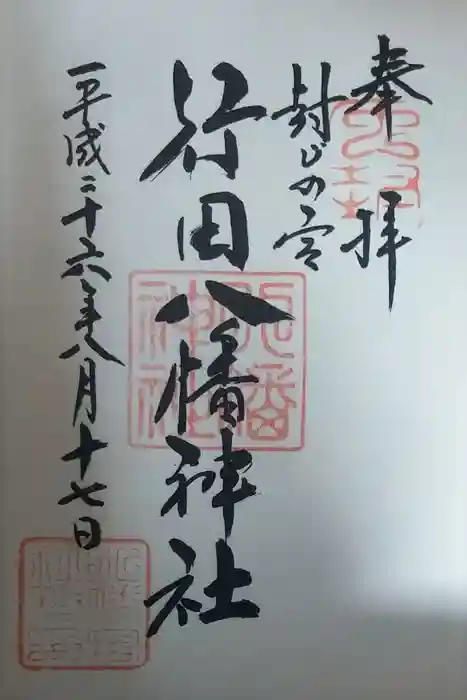 奉拝
封じの宮
行田八幡神社
平成二十六年八月十七日
八幡神社